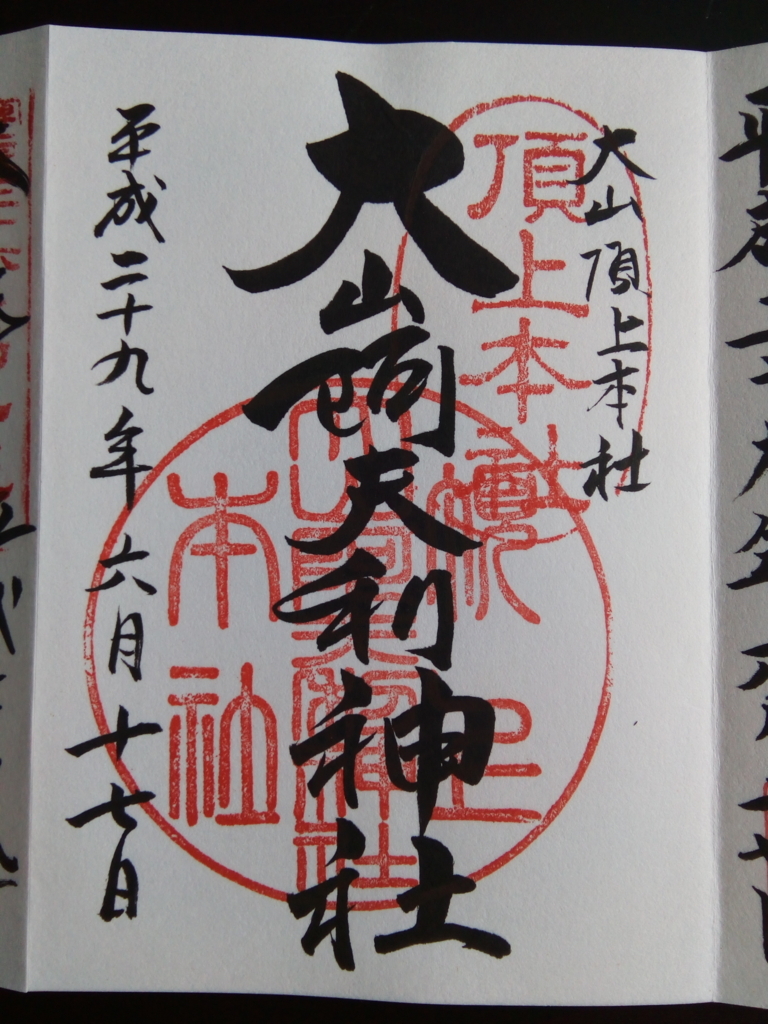 大山頂上本社
頂上本社
大山阿夫利神社
本社
平成二十九年六月十七日